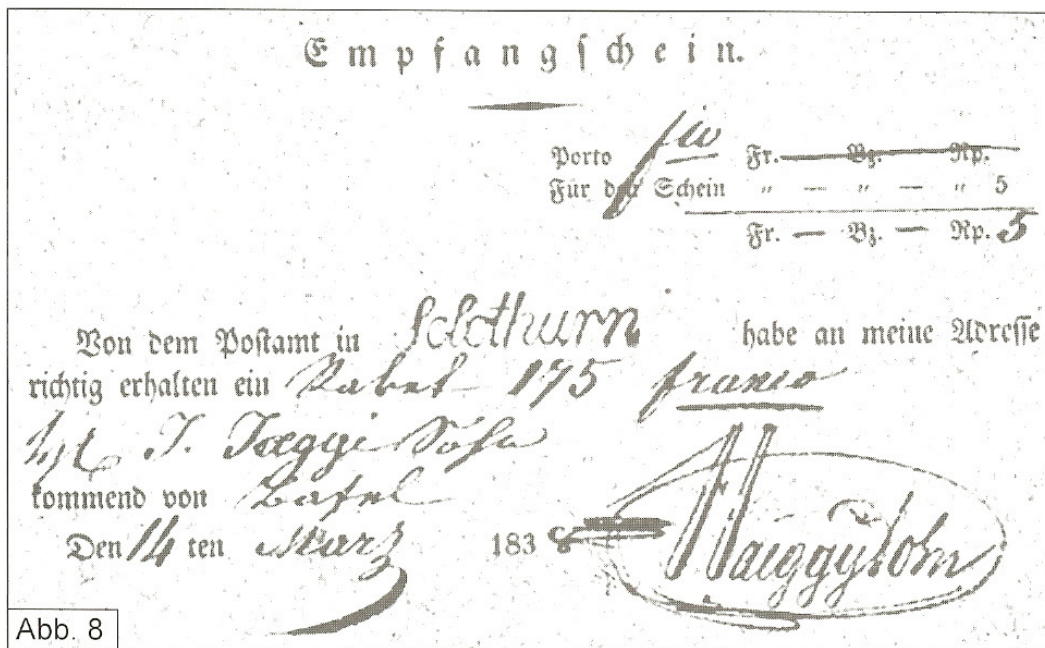 Empfangschein.
Porto fco Fr. Bz. Rp.
Für den Schein " — " — " 5
Fr. — Bz. — Rp. 5
Von dem Postamt in Solothurn habe an meine Adresse
richtig erhalten ein 175 franco
J. Jaeggi Sohn
kommend von Basel
Den 14 ten März 1838
Abb. 8